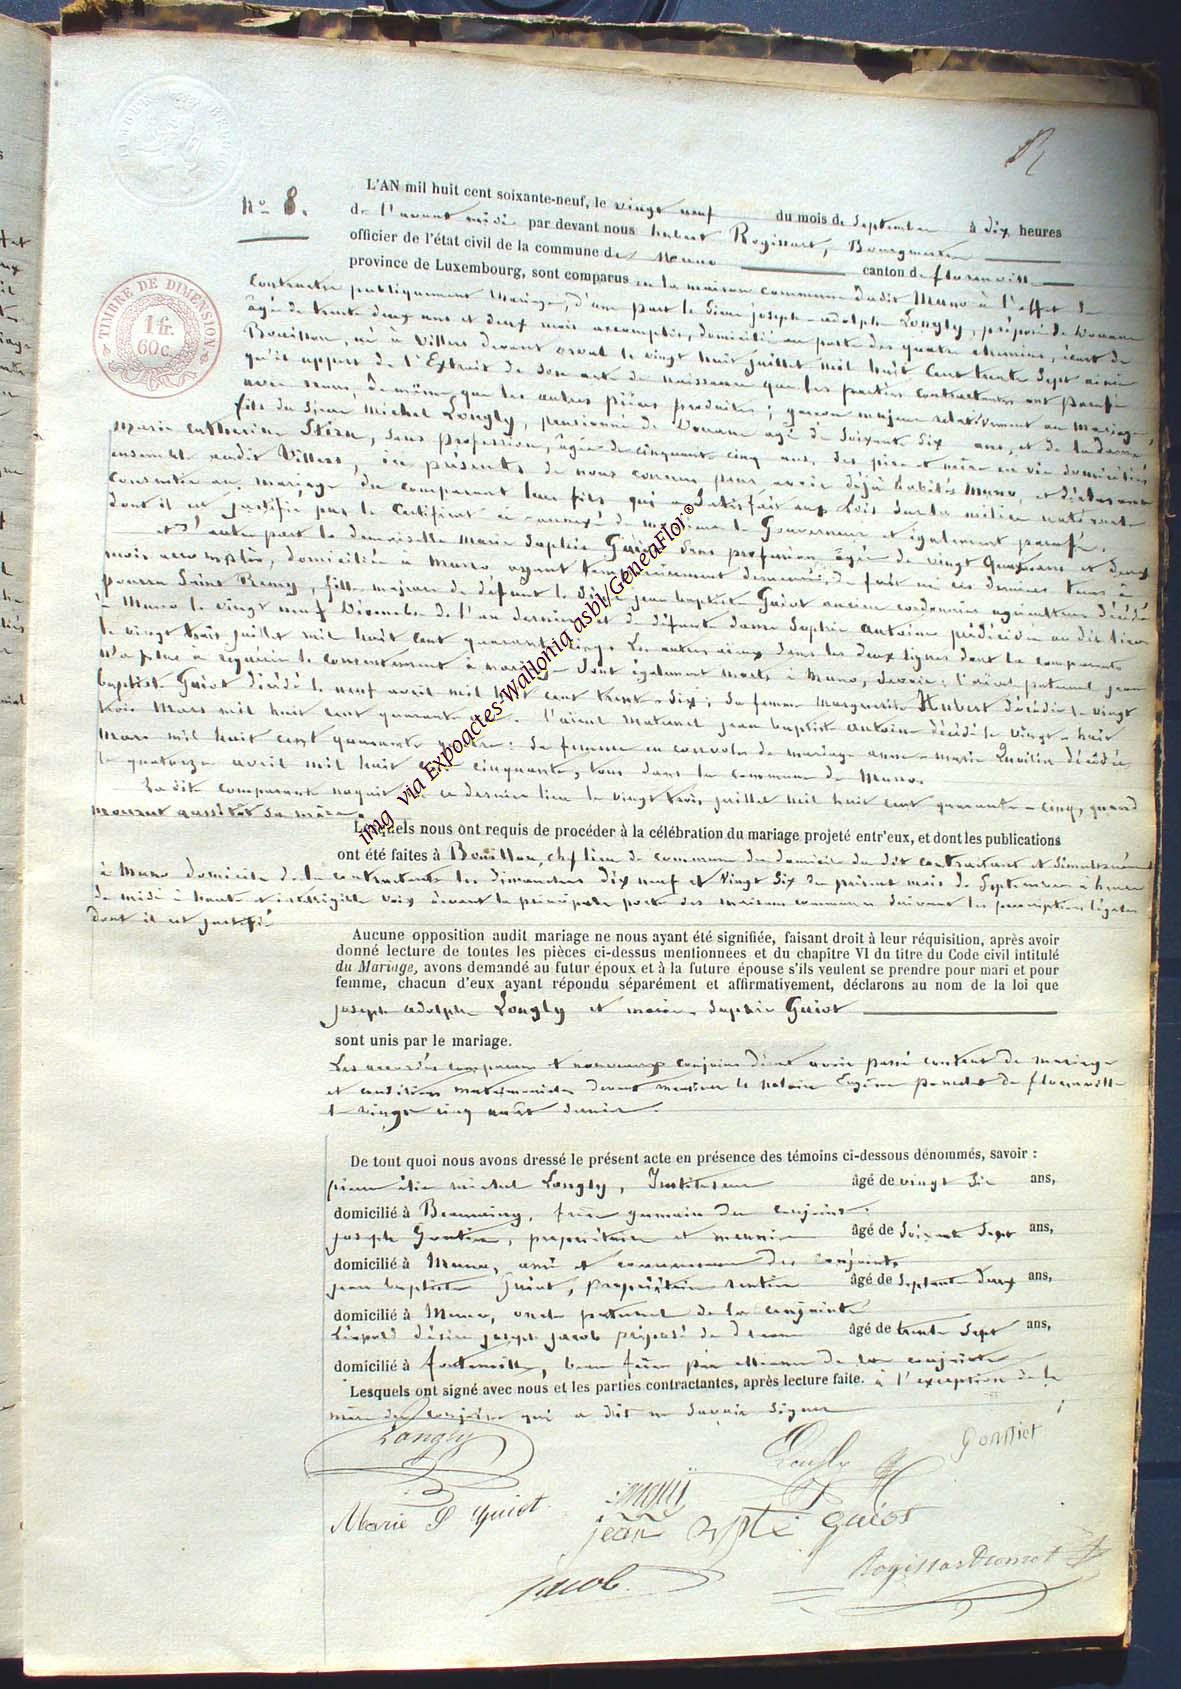 TIMBRE DE DIMENSION
1 fr.
60 c.
N° 8.
L'AN mil huit cent soixante-neuf, le vingt neuf du mois de Septembre à dix heures
de l'avant midi par devant nous hubert Rogissart, Bourgmestre
officier de l'état civil de la commune de Muno canton de florenville
province de Luxembourg, sont comparus en la maison commune dudit Muno à l'effet de
Contracter publiquement Mariage, d'une part le Sieur joseph-adolphe Longly, préposé de Douane
âgé de trente deux ans et deux mois accomplis, domicilié au poste des quatre chemins, de
Bouillon, né à Villers devant orval le vingt huit juillet mil huit cent trente sept ainsi
qu'il appert de l'Extrait de son acte de naissance que les parties contractantes ont paraphé
avec nous, de même que les autres pièces produites; garçon majeur relativement au Mariage,
fils du Sieur Michel Longly, pensionné de Douane agé de soixante six ans, et de la dame
Marie Catherine, sans profession, âgée de cinquante cinq ans, ses père et mère en vie domiciliés
ensemble audit Villers, ici présents de nous connus pour avoir déjà habités Muno, et déclarant
Consentir au mariage du comparant leur fils qui a satisfait aux Lois sur la milice nationale
dont il est justifié par le Certificat ci-annexé de monsieur le Gouverneur et également paraphé.
et d'autre part la demoiselle Marie Sophie Guiot sans profession âgée de vingt quatre ans et deux
mois accomplis, domiciliée à Muno ayant demeurée de fait en ces derniers tems à
pourru Saint Remy, fille majeure de défunt le Sieur jean baptiste Guiot ancien cordonnier agriculteur décédé
à Muno le vingt neuf Décembre de l'an dernier et de défunte dame Sophie Antoine prédécédée au dit lieu
le vingt trois juillet mil huit cent quarante cinq. Les autres aieux dans les deux lignes dont la comparante
n'a plus à requérir le consentement à mariage sont également morts à Muno, savoir: l'aïeul paternel jean
baptiste Guiot décédé le neuf avril mil huit cent trente-six; sa femme Marguerite Hubert décédée le vingt
trois Mars mil huit cent quarante. l'aïeul Maternel jean baptiste Antoine décédé le vingt-huit
Mars mil huit cent quarante quatre: sa femme en convoles de mariage anne-marie décédée
le quatorze avril mil huit cent cinquante, tous dans la commune de Muno.
La dite comparante naquit en ce dernier lieu le vingt trois juillet mil huit cent quarante-cinq, quand
mourut aussitôt sa mère.
Lesquels nous ont requis de procéder à la célébration du mariage projeté entr'eux, et dont les publications
ont été faites à Bouillon, chef lieu de commune du domicile du dit contractant et simultanément
à Muno domicile de la contractante les dimanches dix neuf et vingt six du présent mois de Septembre à heure
de midi à haute et intelligible voix devant la principale porte des maisons communes suivant les prescriptions légales
dont il est justifié
Aucune opposition audit mariage ne nous ayant été signifiée, faisant droit à leur réquisition, après avoir
donné lecture de toutes les pièces ci-dessus mentionnées et du chapitre VI du titre du Code civil intitulé
du Mariage, avons demandé au futur époux et à la future épouse s'ils veulent se prendre pour mari et pour
femme, chacun d'eux ayant répondu séparément et affirmativement, déclarons au nom de la loi que
joseph adolphe Longly et marie-Sophie Guiot
sont unis par le mariage.
Les accordés comparants et nouveaux conjoints disent avoir passé contrat de mariage
et conditions matrimoniales devant monsieur le Notaire Eugène de florenville
le vingt cinq août dernier.
De tout quoi nous avons dressé le présent acte en présence des témoins ci-dessous dénommés, savoir :
pierre michel Longly, Instituteur âgé de vingt six ans,
domicilié à, frère germain du conjoint.
joseph, propriétaire et meunier âgé de soixante sept ans,
domicilié à Muno, ami et connaissance des conjoints
jean baptiste Guiot, propriétaire rentier âgé de septante deux ans,
domicilié à Muno, oncle paternel de la conjointe
Léopold désiré joseph jacob préposé de douane âgé de trente sept ans,
domicilié à fontenoille, beau frère par alliance de la conjointe
Lesquels ont signé avec nous et les parties contractantes, après lecture faite. à l'exception de la
mère du conjoint qui a dit ne savoir signer
Longly
Longly
Marie S Guiot
jean Bpte guiot
jacob
img via Expoactes-Wallonia asbl/GeneaFlor®